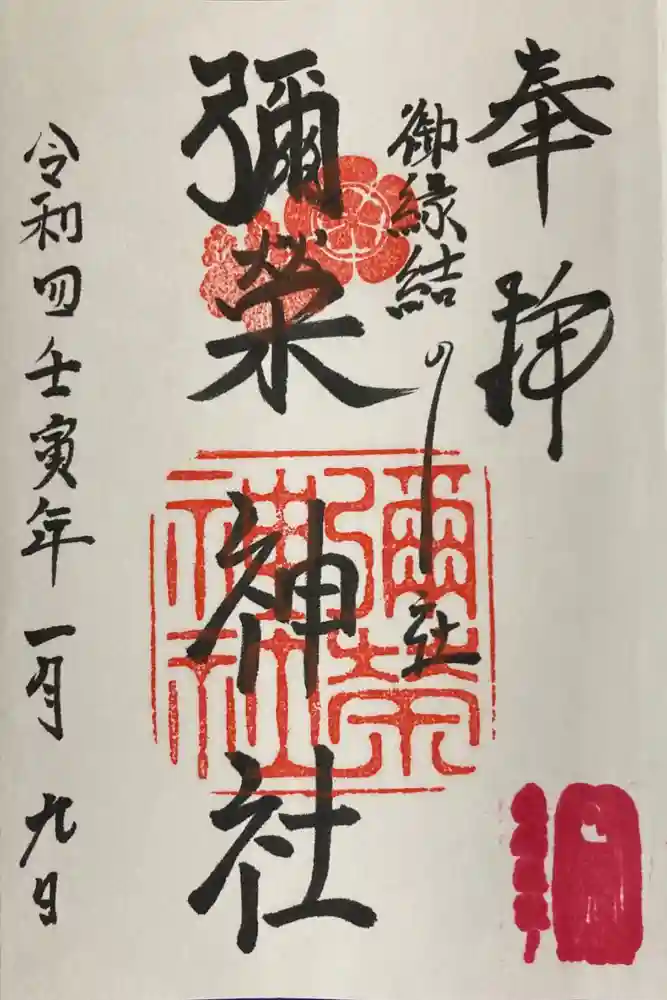 奉拝
御縁結の社
彌榮神社
彌榮神社
令和四壬寅年一月九日